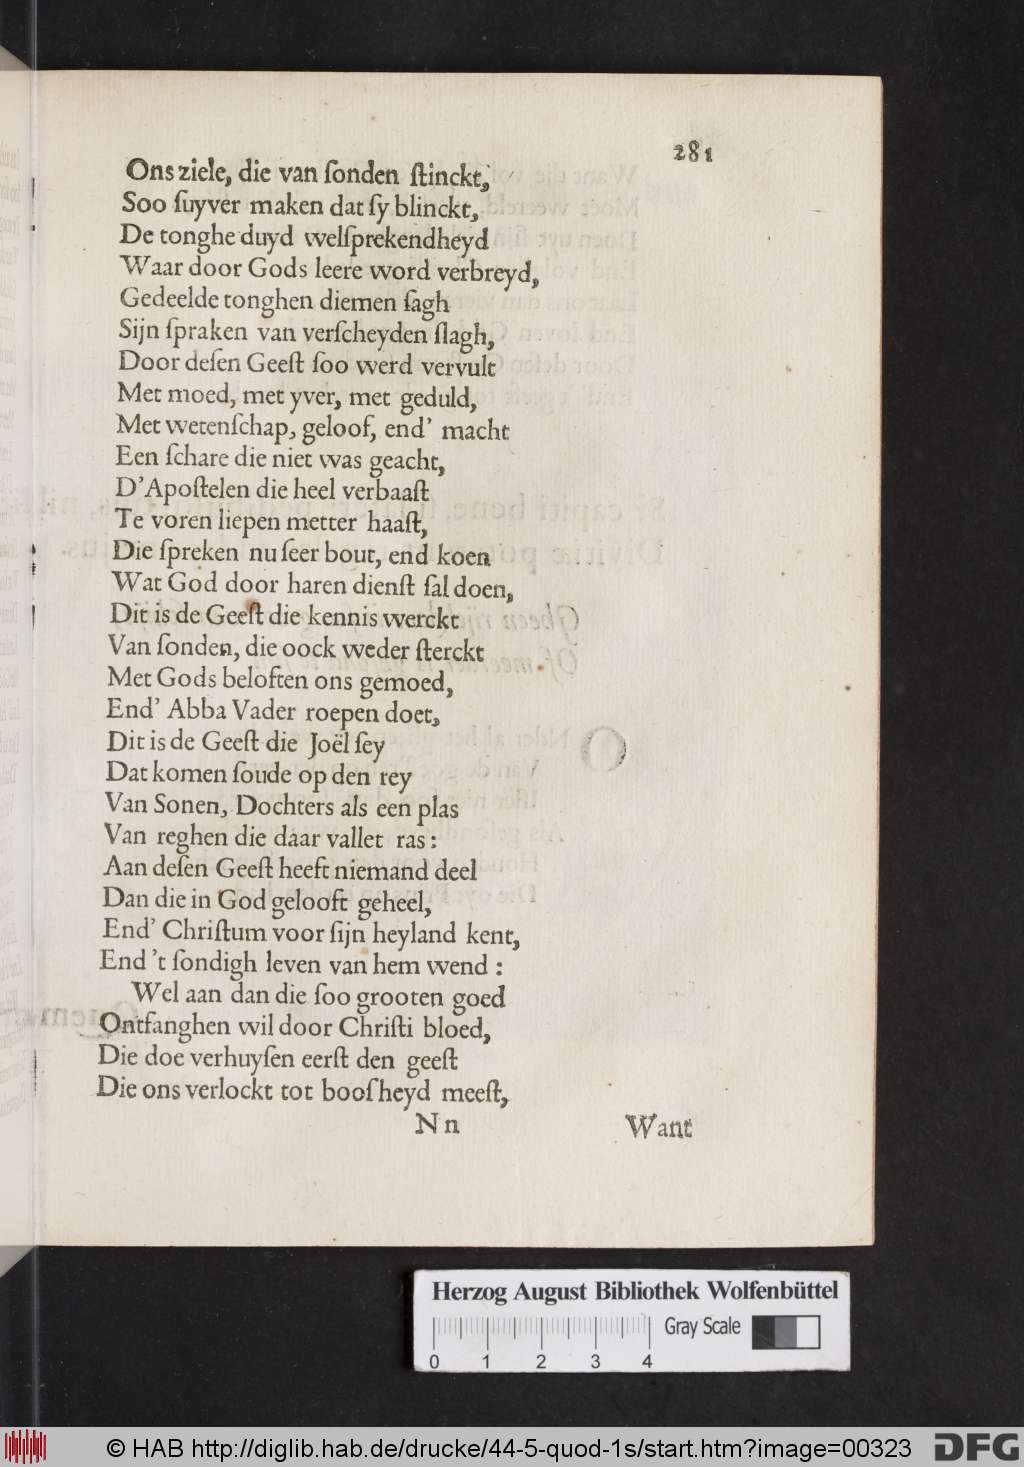 281
Ons ziele, die van ſonden ſtinckt,
Soo ſuyver maken dat ſy blinckt,
De tonghe duyd welſprekendheyd
Waar door Gods leere word verbreyd,
Gedeelde tonghen diemen ſagh
Sijn ſpraken van verſcheyden ſlagh,
Door deſen Geeſt ſoo werd vervult
Met moed, met yver, met geduld,
Met wetenſchap, geloof, end' macht
Een ſchare die niet was geacht,
D'Apoſtelen die heel verbaaſt
Te voren liepen metter haaſt,
Die ſpreken nu ſeer bout, end koen
Wat God door haren dienſt ſal doen,
Dit is de Geeſt die kennis werckt
Van ſonden, die oock weder ſterckt
Met Gods beloften ons gemoed,
End' Abba Vader roepen doet,
Dit is de Geeſt die Joël ſey
Dat komen ſoude op den rey
Van Sonen, Dochters als een plas
Van reghen die daar vallet ras:
Aan deſen Geeſt heeft niemand deel
Dan die in God gelooft geheel,
End' Chriſtum voor ſijn heyland kent,
End 't ſondigh leven van hem wend:
Wel aan dan die ſoo grooten goed
Ontfanghen wil door Chriſti bloed,
Die doe verhuyſen eerſt den geeſt
Die ons verlockt tot booſheyd meeſt,
Nn Want
Herzog August Bibliothek Wolfenbüttel
Gray Scale
0 1 2 3 4
© HAB http://diglib.hab.de/drucke/44-5-quod-1s/start.htm?image=00323 DFG